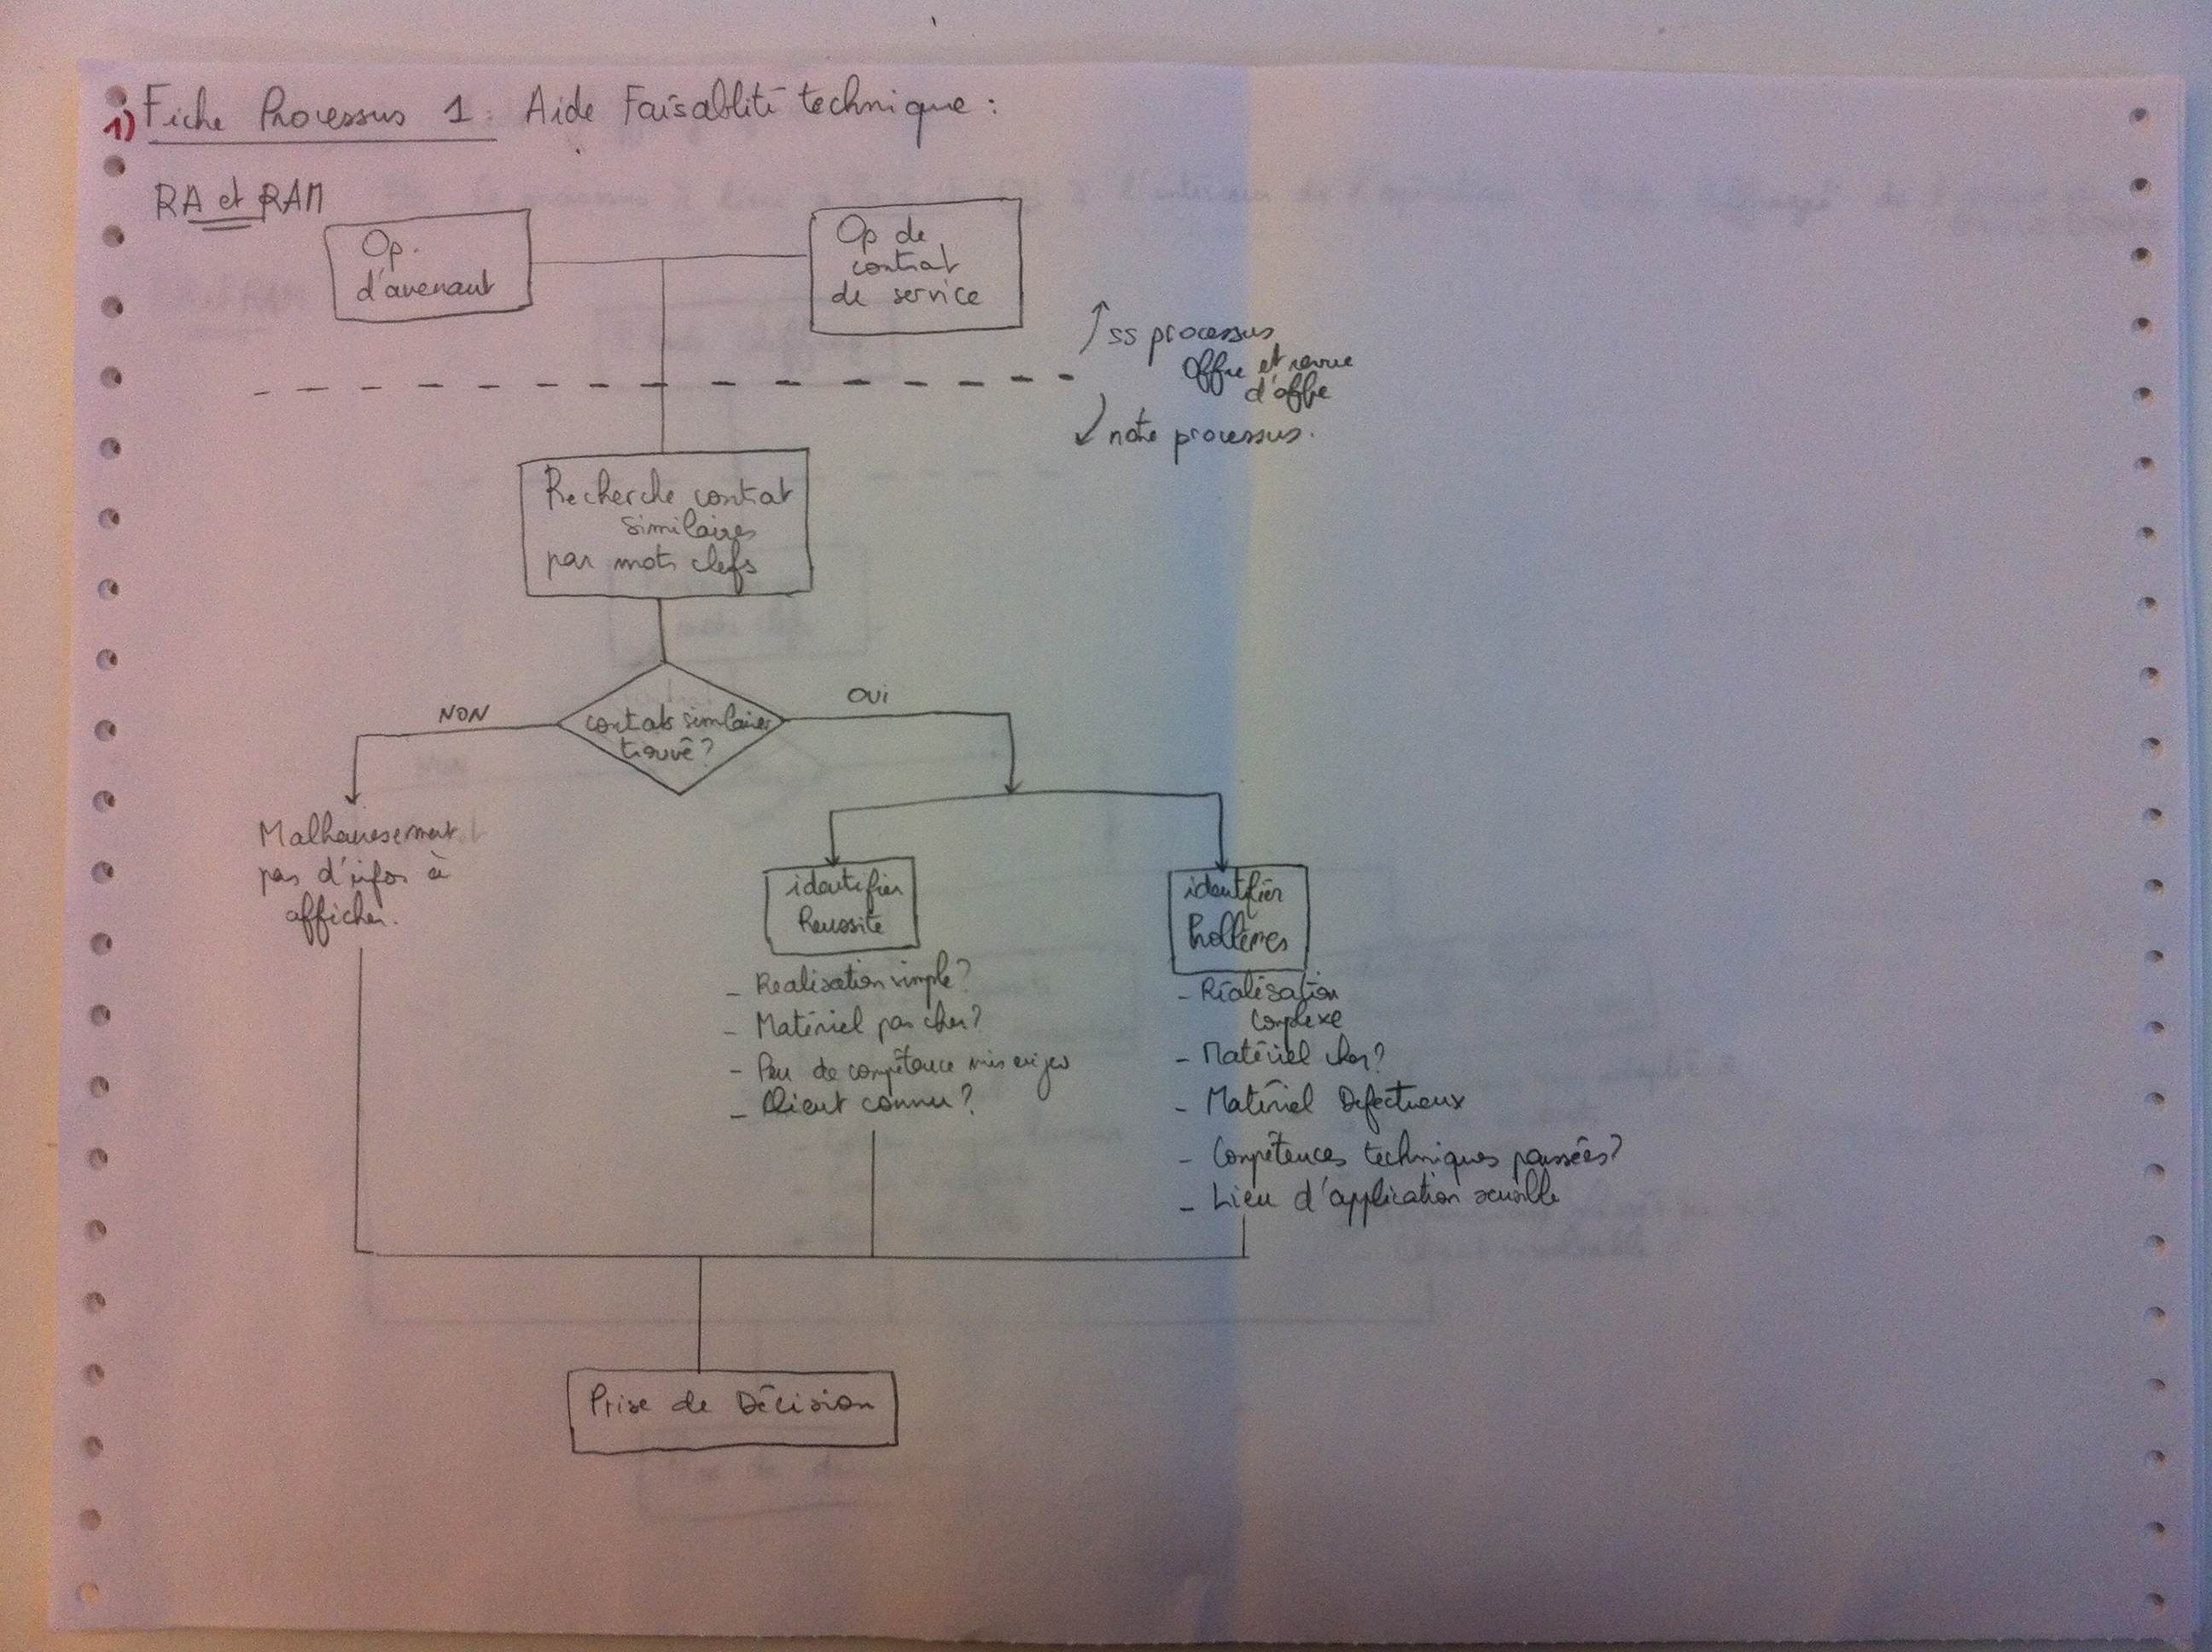 1) Fiche Processus 1 : Aide Faisablité technique :
RA et RAM
Op.
d'avenant
Op de
contrat
de service
ss processus
Offre et revue
d'offre
notre processus.
Recherche contrat
similaires
par mots clefs
contrats similaires
trouvé ?
NON
OUI
Malheuresement
pas d'infos à
afficher.
identifier
Reussite
- Realisation simple ?
- Matériel pas cher ?
- Peu de compétence mis en jeu
- Client connu ?
identifier
Problèmes
- Réalisation
complexe
- Matériel cher ?
- Matériel Défectueux
- Compétences techniques poussées ?
- Lieu d'application sensible
Prise de Décision